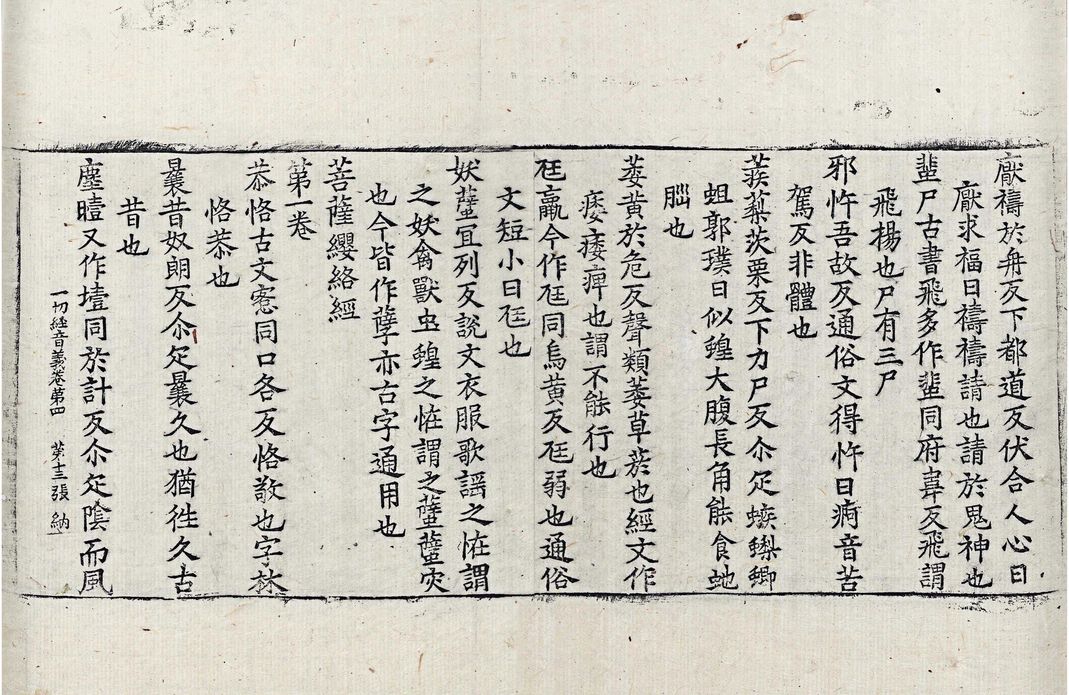 厭禱於舟反下都道反伏合人心曰
厭求福曰禱禱請也請於鬼神也
蜚尸古書飛多作蜚同府韋反飛謂
飛揚也尸有三尸
邪忤吾故反通俗文得忤曰痏音苦
駕反非體也
蒺䔧茨栗反下力尸反尒疋蝍
蛆郭璞曰似蝗大腹長角能食虵
腦也
萎黃於危反聲類萎草菸也經文作
痿痿痺也謂不能行也
尫羸今作尫同烏黃反尫弱也通俗
文短小曰尫也
妖㜸冝列反說文衣服歌謡之恠謂
之妖禽獸虫蝗之恠謂之㜸㜸灾
也今皆作孽亦古字通用也
菩薩纓絡經
第一卷
恭恪古文愙同口各反恪敬也字林
恪恭也
曩昔奴朗反尒疋曩久也猶徃久古
昔也
塵曀又作壇同於計反尒疋陰而風
一切經音義卷第四 第十三張 納